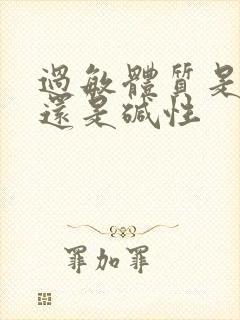 過敏體質是
還是碱性
罪加罪